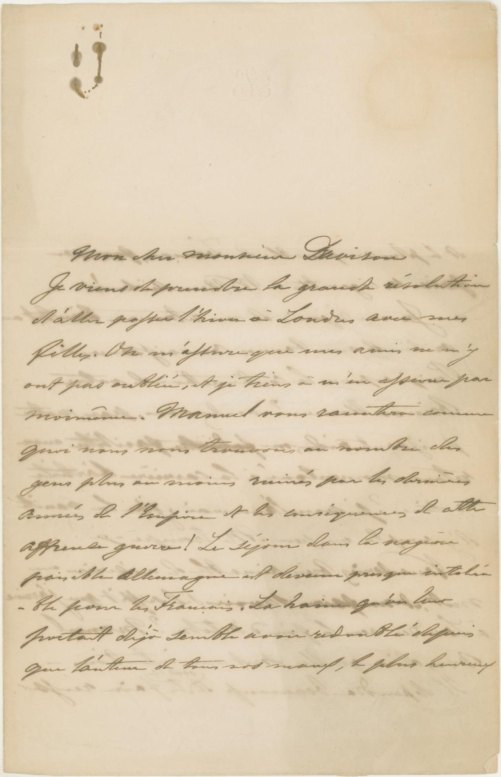 Mon cher monsieur Davison
Je viens de prendre la grande résolution
d'aller passer l'hiver à Londres avec mes
filles. On m'assure que mes amis ne m'y
ont pas oubliée, et je tiens à m'en assurer par
moi même. Manuel vous racontera comme
quoi nous nous trouvons au nombre des
gens plus ou moins ruinés par les dernières
années de l'Empire et les conséquences de cette
affreuse guerre! Le séjour dans la naguère
paisible Allemagne est devenu presque intoléra
-ble pour les Français. La haine qu'on leur
portait déjà semble avoir redoublé depuis
que l'auteur de tous nos maux, le plus heureux